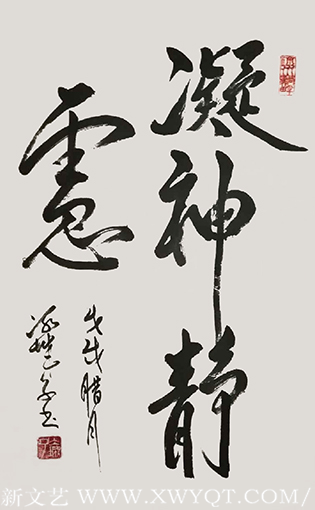 凝神静
慮
戊戌腊月
新文艺 WWW.XWYQT.COM/